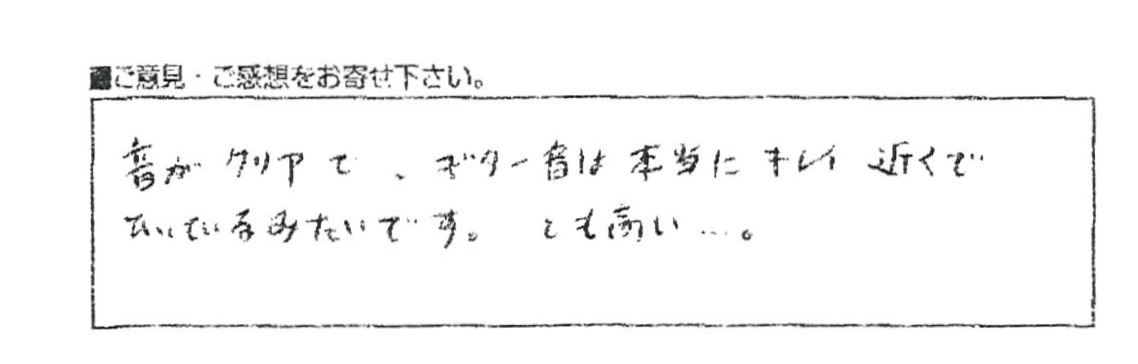 ■ご意見・ご感想をお寄せ下さい。
音がクリアで、ギター音は本当にキレイ 近くで
ひいているみたいです。 とも高い…。